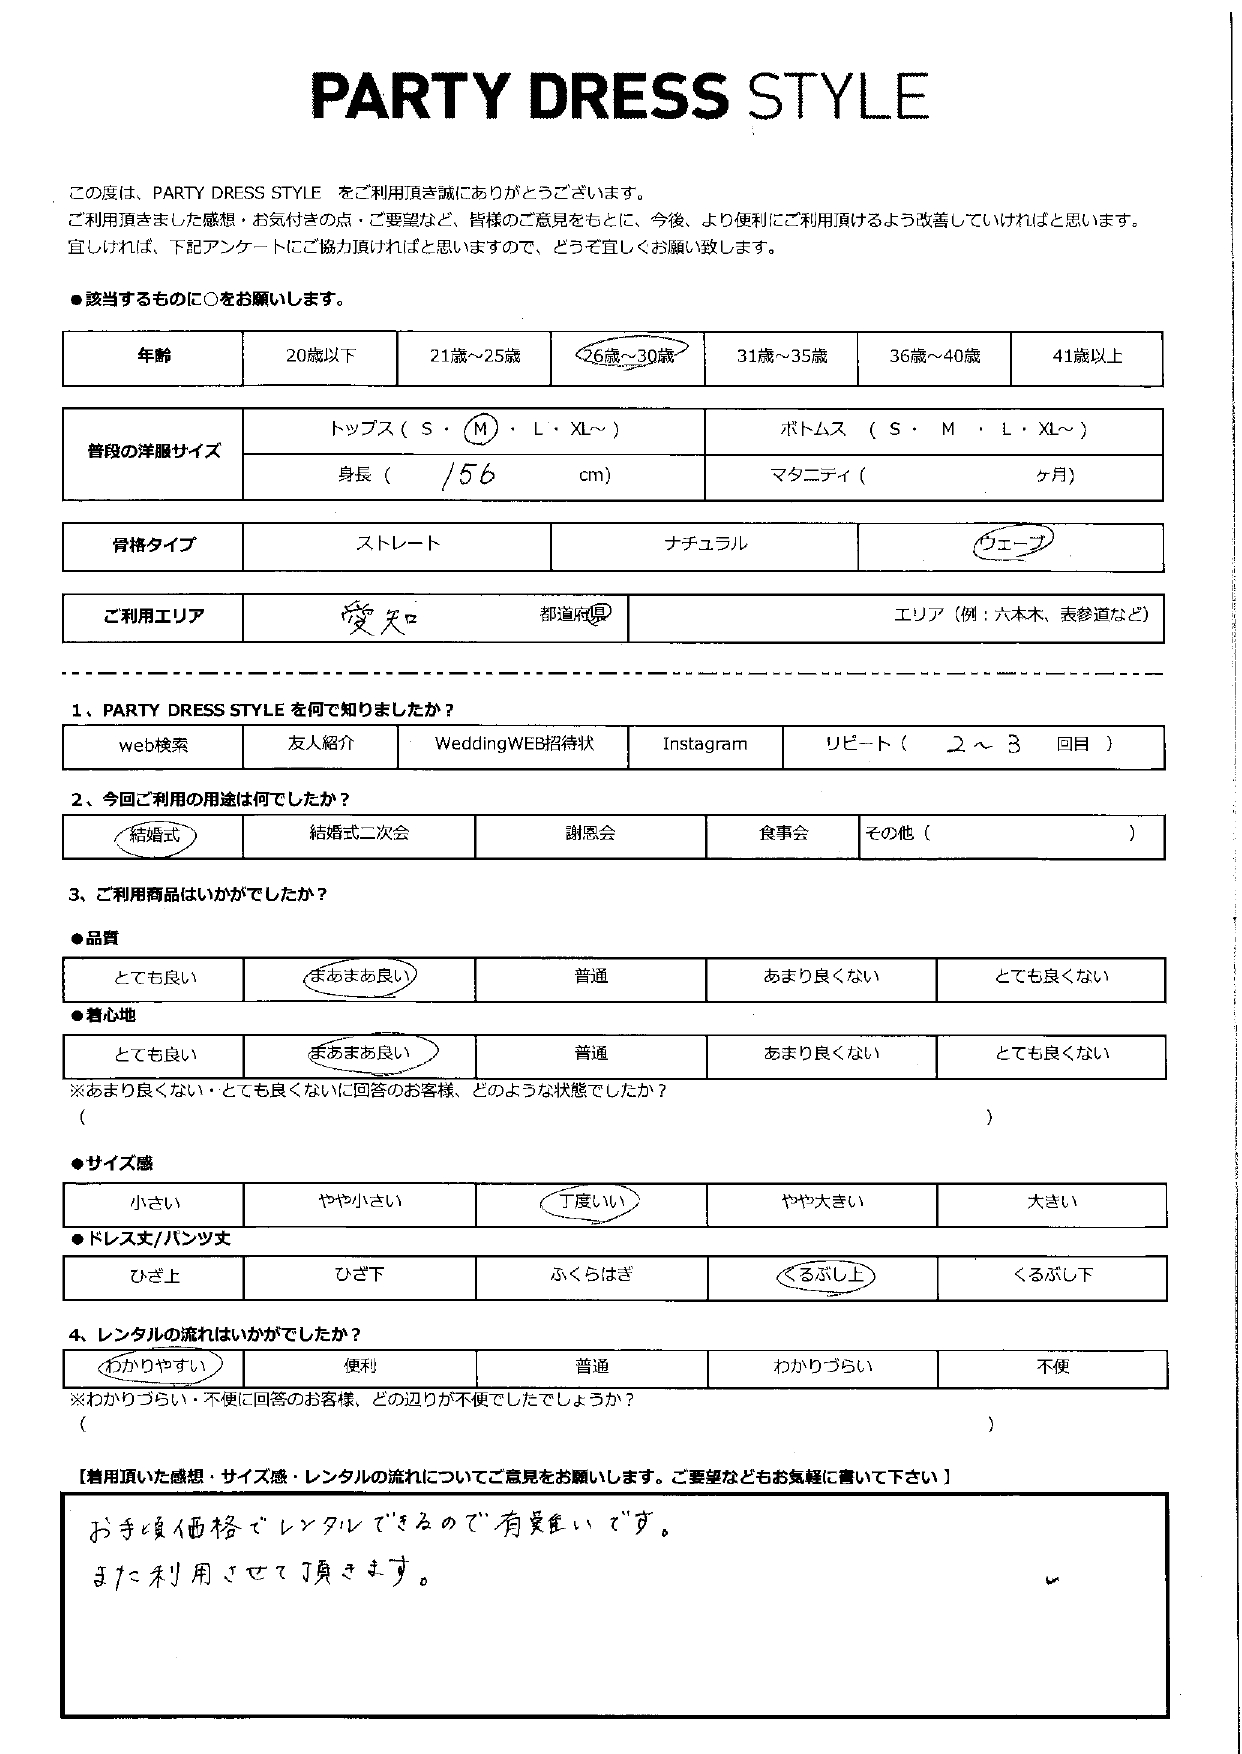 PARTY DRESS STYLE
この度は、PARTY DRESS STYLE をご利用頂き誠にありがとうございます。
ご利用頂きました感想・お気付きの点・ご要望など、皆様のご意見をもとに、今後、より便利にご利用頂けるよう改善していければと思います。
宜しければ、下記アンケートにご協力頂ければと思いますので、どうぞ宜しくお願い致します。
●該当するものに○をお願いします。
年齢 20歳以下 21歳～25歳 26歳～30歳 31歳～35歳 36歳～40歳 41歳以上
普段の洋服サイズ トップス ( S ・ M ・ L ・ XL～ ) ボトムス ( S ・ M ・ L ・ XL～ )
身長 ( 156 cm) マタニティ ( ヶ月)
骨格タイプ ストレート ナチュラル ウェーブ
ご利用エリア 愛知 都道府県 エリア（例：六本木、表参道など）
1、PARTY DRESS STYLE を何で知りましたか？
web検索 友人紹介 WeddingWEB招待状 Instagram リピート ( 2～3 回目 )
2、今回ご利用の用途は何でしたか？
結婚式 結婚式二次会 謝恩会 食事会 その他 ( )
3、ご利用商品はいかがでしたか？
●品質
とても良い まあまあ良い 普通 あまり良くない とても良くない
●着心地
とても良い まあまあ良い 普通 あまり良くない とても良くない
※あまり良くない・とても良くないに回答のお客様、どのような状態でしたか？
( )
●サイズ感
小さい やや小さい 丁度いい やや大きい 大きい
●ドレス丈/パンツ丈
ひざ上 ひざ下 ふくらはぎ くるぶし上 くるぶし下
4、レンタルの流れはいかがでしたか？
わかりやすい 便利 普通 わかりづらい 不便
※わかりづらい・不便に回答のお客様、どの辺りが不便でしたでしょうか？
( )
【着用頂いた感想・サイズ感・レンタルの流れについてご意見をお願いします。ご要望などもお気軽に書いて下さい】
お手頃価格でレンタルできるので有難いです。
また利用させて頂きます。